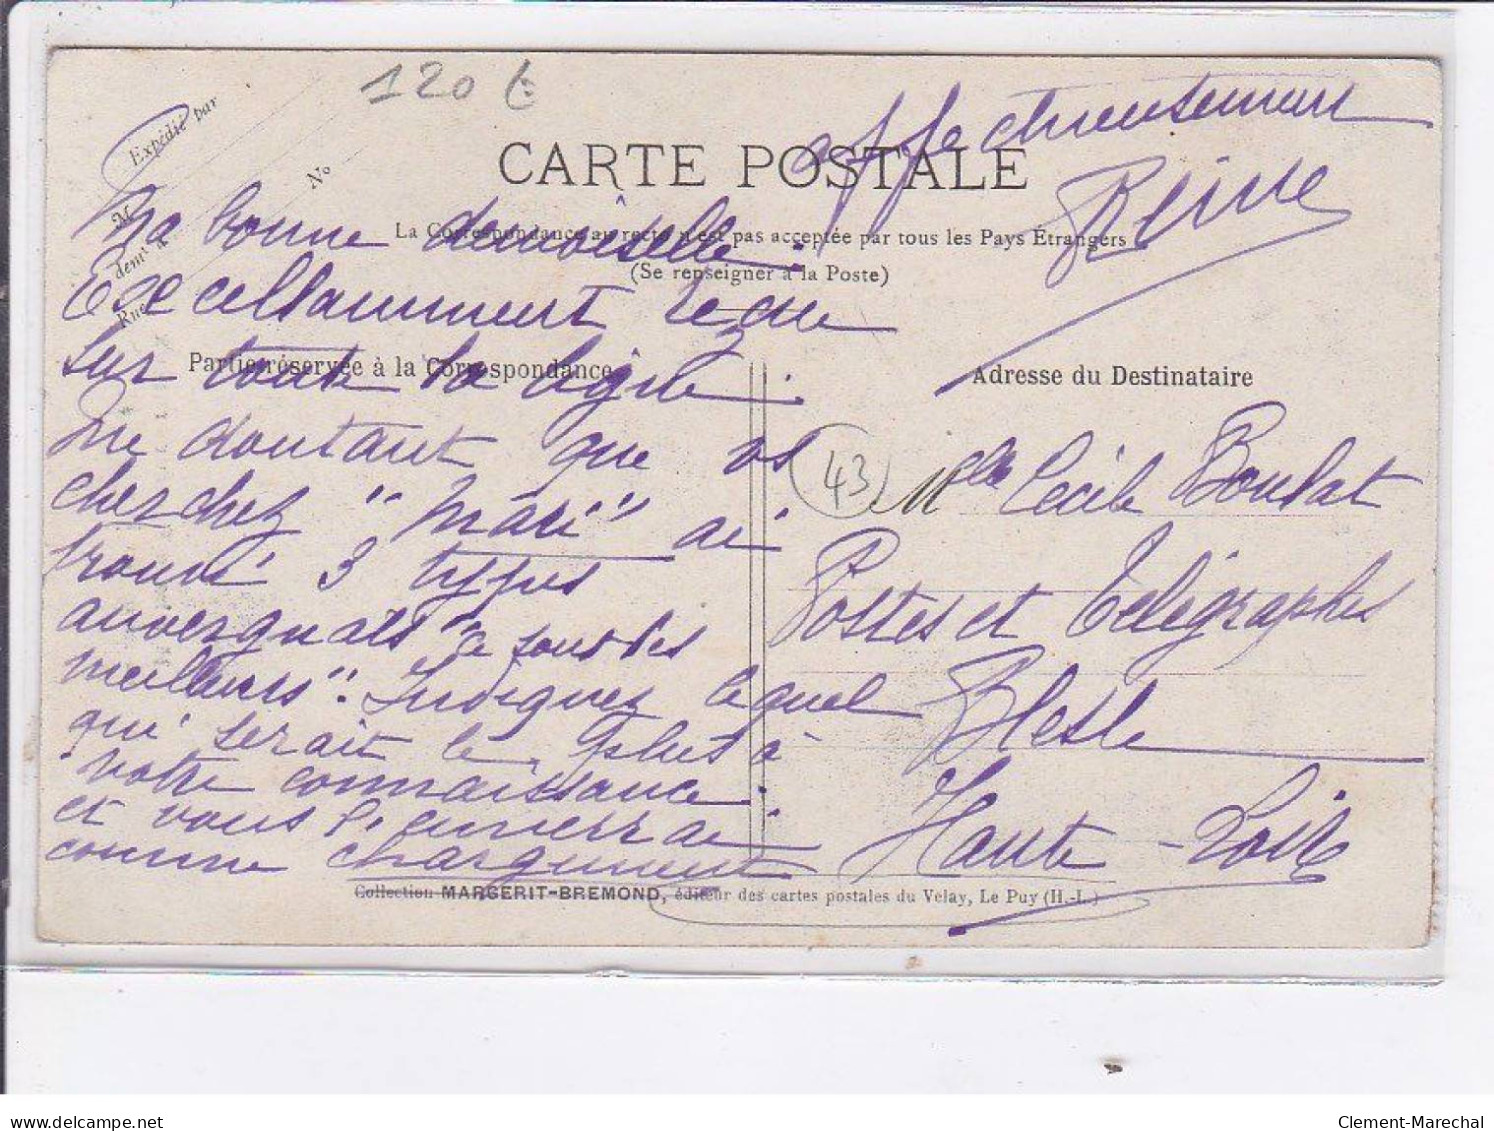 120 €
Expédié par
M
demt à
Rue
No
CARTE POSTALE
La Correspondance au recto n'est pas acceptée par tous les Pays Étrangers
(Se renseigner à la Poste)
Partie réservée à la Correspondance
Adresse du Destinataire
affectueusement
Reine
Ma bonne demoiselle :
Excellamment reçue
sur toute la ligne.
Me doutant que vs
cherchez "mari" ai
trouvé 3 types
auvergnats "ce sont les
meilleurs". Indiquez lequel
qui serait le plus à
votre connaissance :
et vous l'amènerrai
comme chargement
43
Mlle Cécile Boulat
Postes et Télégraphes
Blesle
Haute-Loire
Collection MARGERIT-BREMOND, éditeur des cartes postales du Velay, Le Puy (H.-L.)
delcampe.net
Clement-Marechal